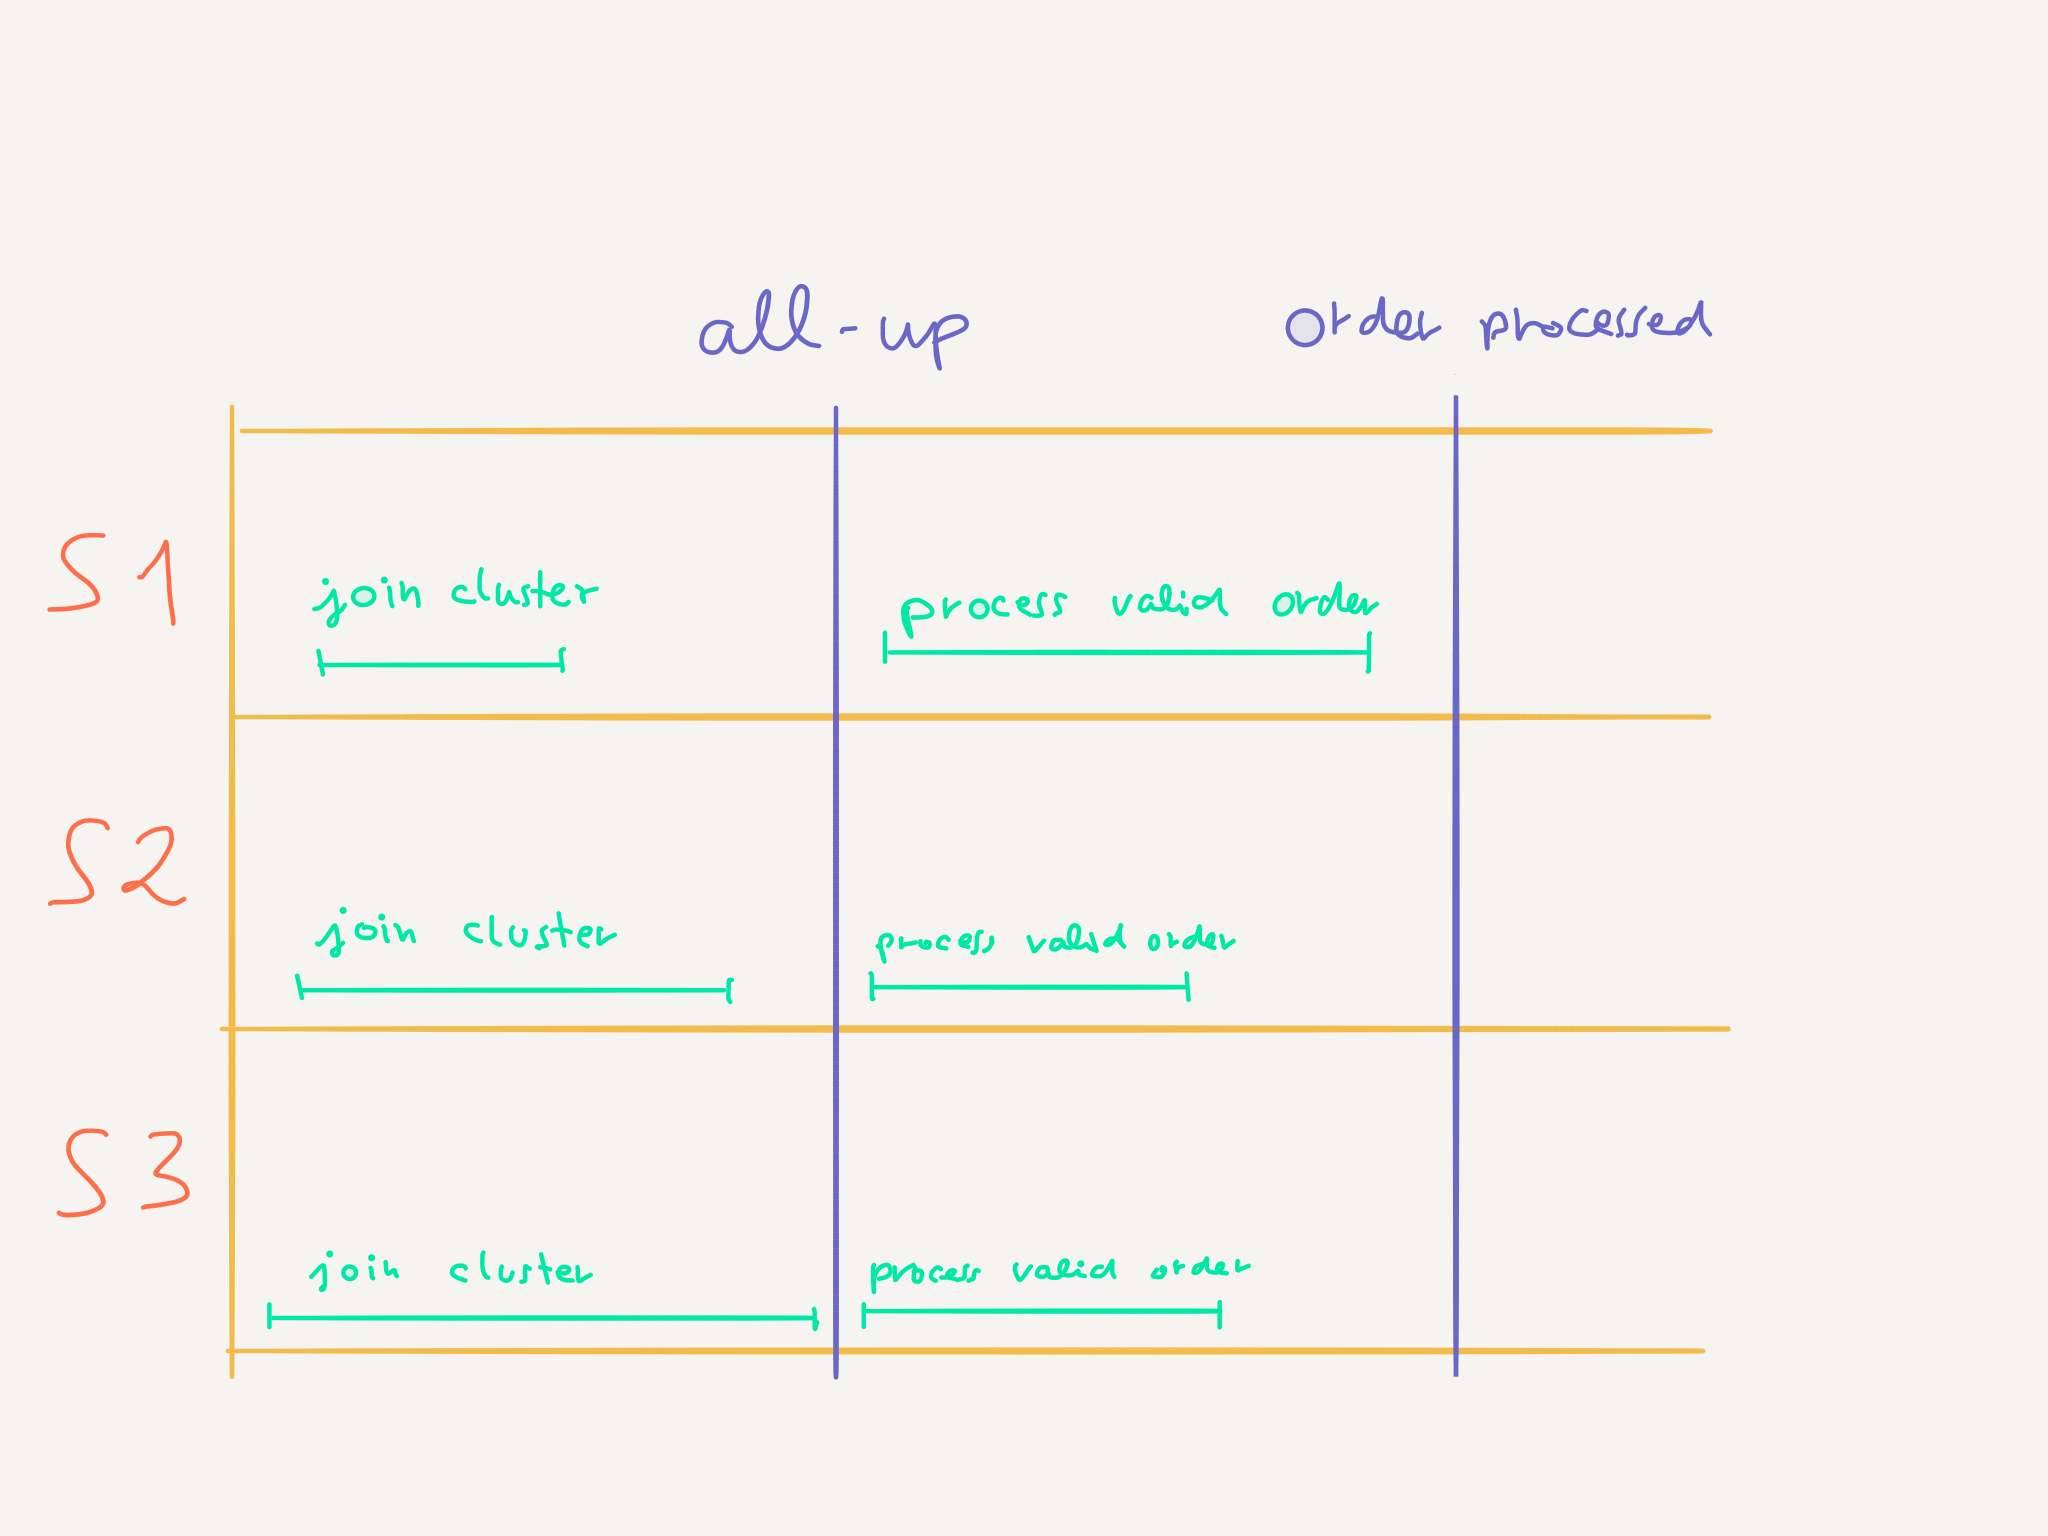 all-up
order processed
S1
join cluster
process valid order
S2
join cluster
process valid order
S3
join cluster
process valid order